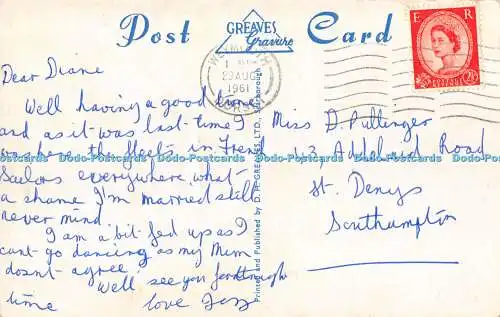 Post Card
GREAVES
Gravure
WEYMOUTH
23 AUG
1961
DORSET
E R
Dear Diane
Well having a good time
and as it was last time I
was here the fleets in
Sailors everywhere what
a shame I'm married still
never mind.
I am a bit fed up as I
cant go dancing as my Mum
dosnt agree.
Well see you
time love
Miss D. Pullinger
43, Addeland Road
St. Denys
Southampton
Printed and Published by D. H. GREAVES LTD., Scarborough
Dodo-Postcards Dodo-Postcards Dodo-Postcards Dodo-Postcards Dodo-Postcards Dodo-Postcards